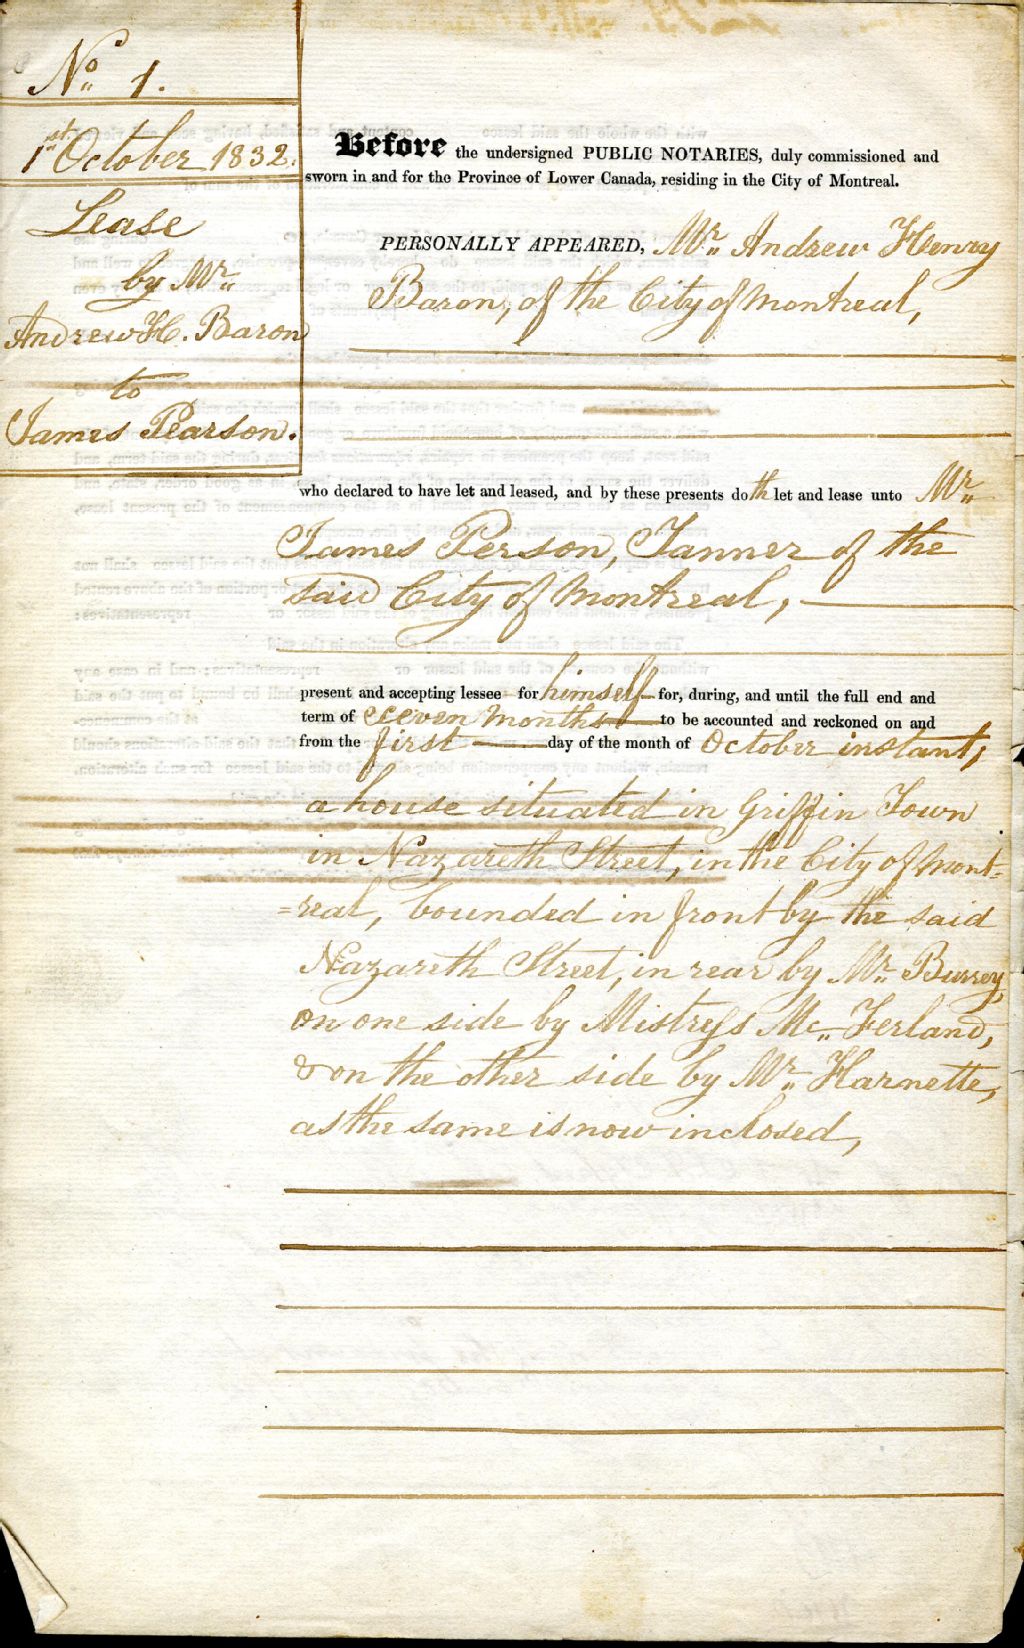 No. 1.
1st October 1832.
Lease
by Mr.
Andrew H. Baron
to
James Pearson.
Before the undersigned PUBLIC NOTARIES, duly commissioned and
sworn in and for the Province of Lower Canada, residing in the City of Montreal.
PERSONALLY APPEARED, Mr. Andrew Henry
Baron, of the City of Montreal,
who declared to have let and leased, and by these presents doth let and lease unto Mr.
James Person, Tanner of the
said City of Montreal,
present and accepting lessee for himself for, during, and until the full end and
term of seven months to be accounted and reckoned on and
from the first day of the month of October instant,
a house situated in Griffin Town
in Nazareth Street, in the City of Mont-
=real, bounded in front by the said
Nazareth Street, in rear by Mr. Burrey,
on one side by Mistress Mc. Ferland,
& on the other side by Mr. Harnette,
as the same is now inclosed,